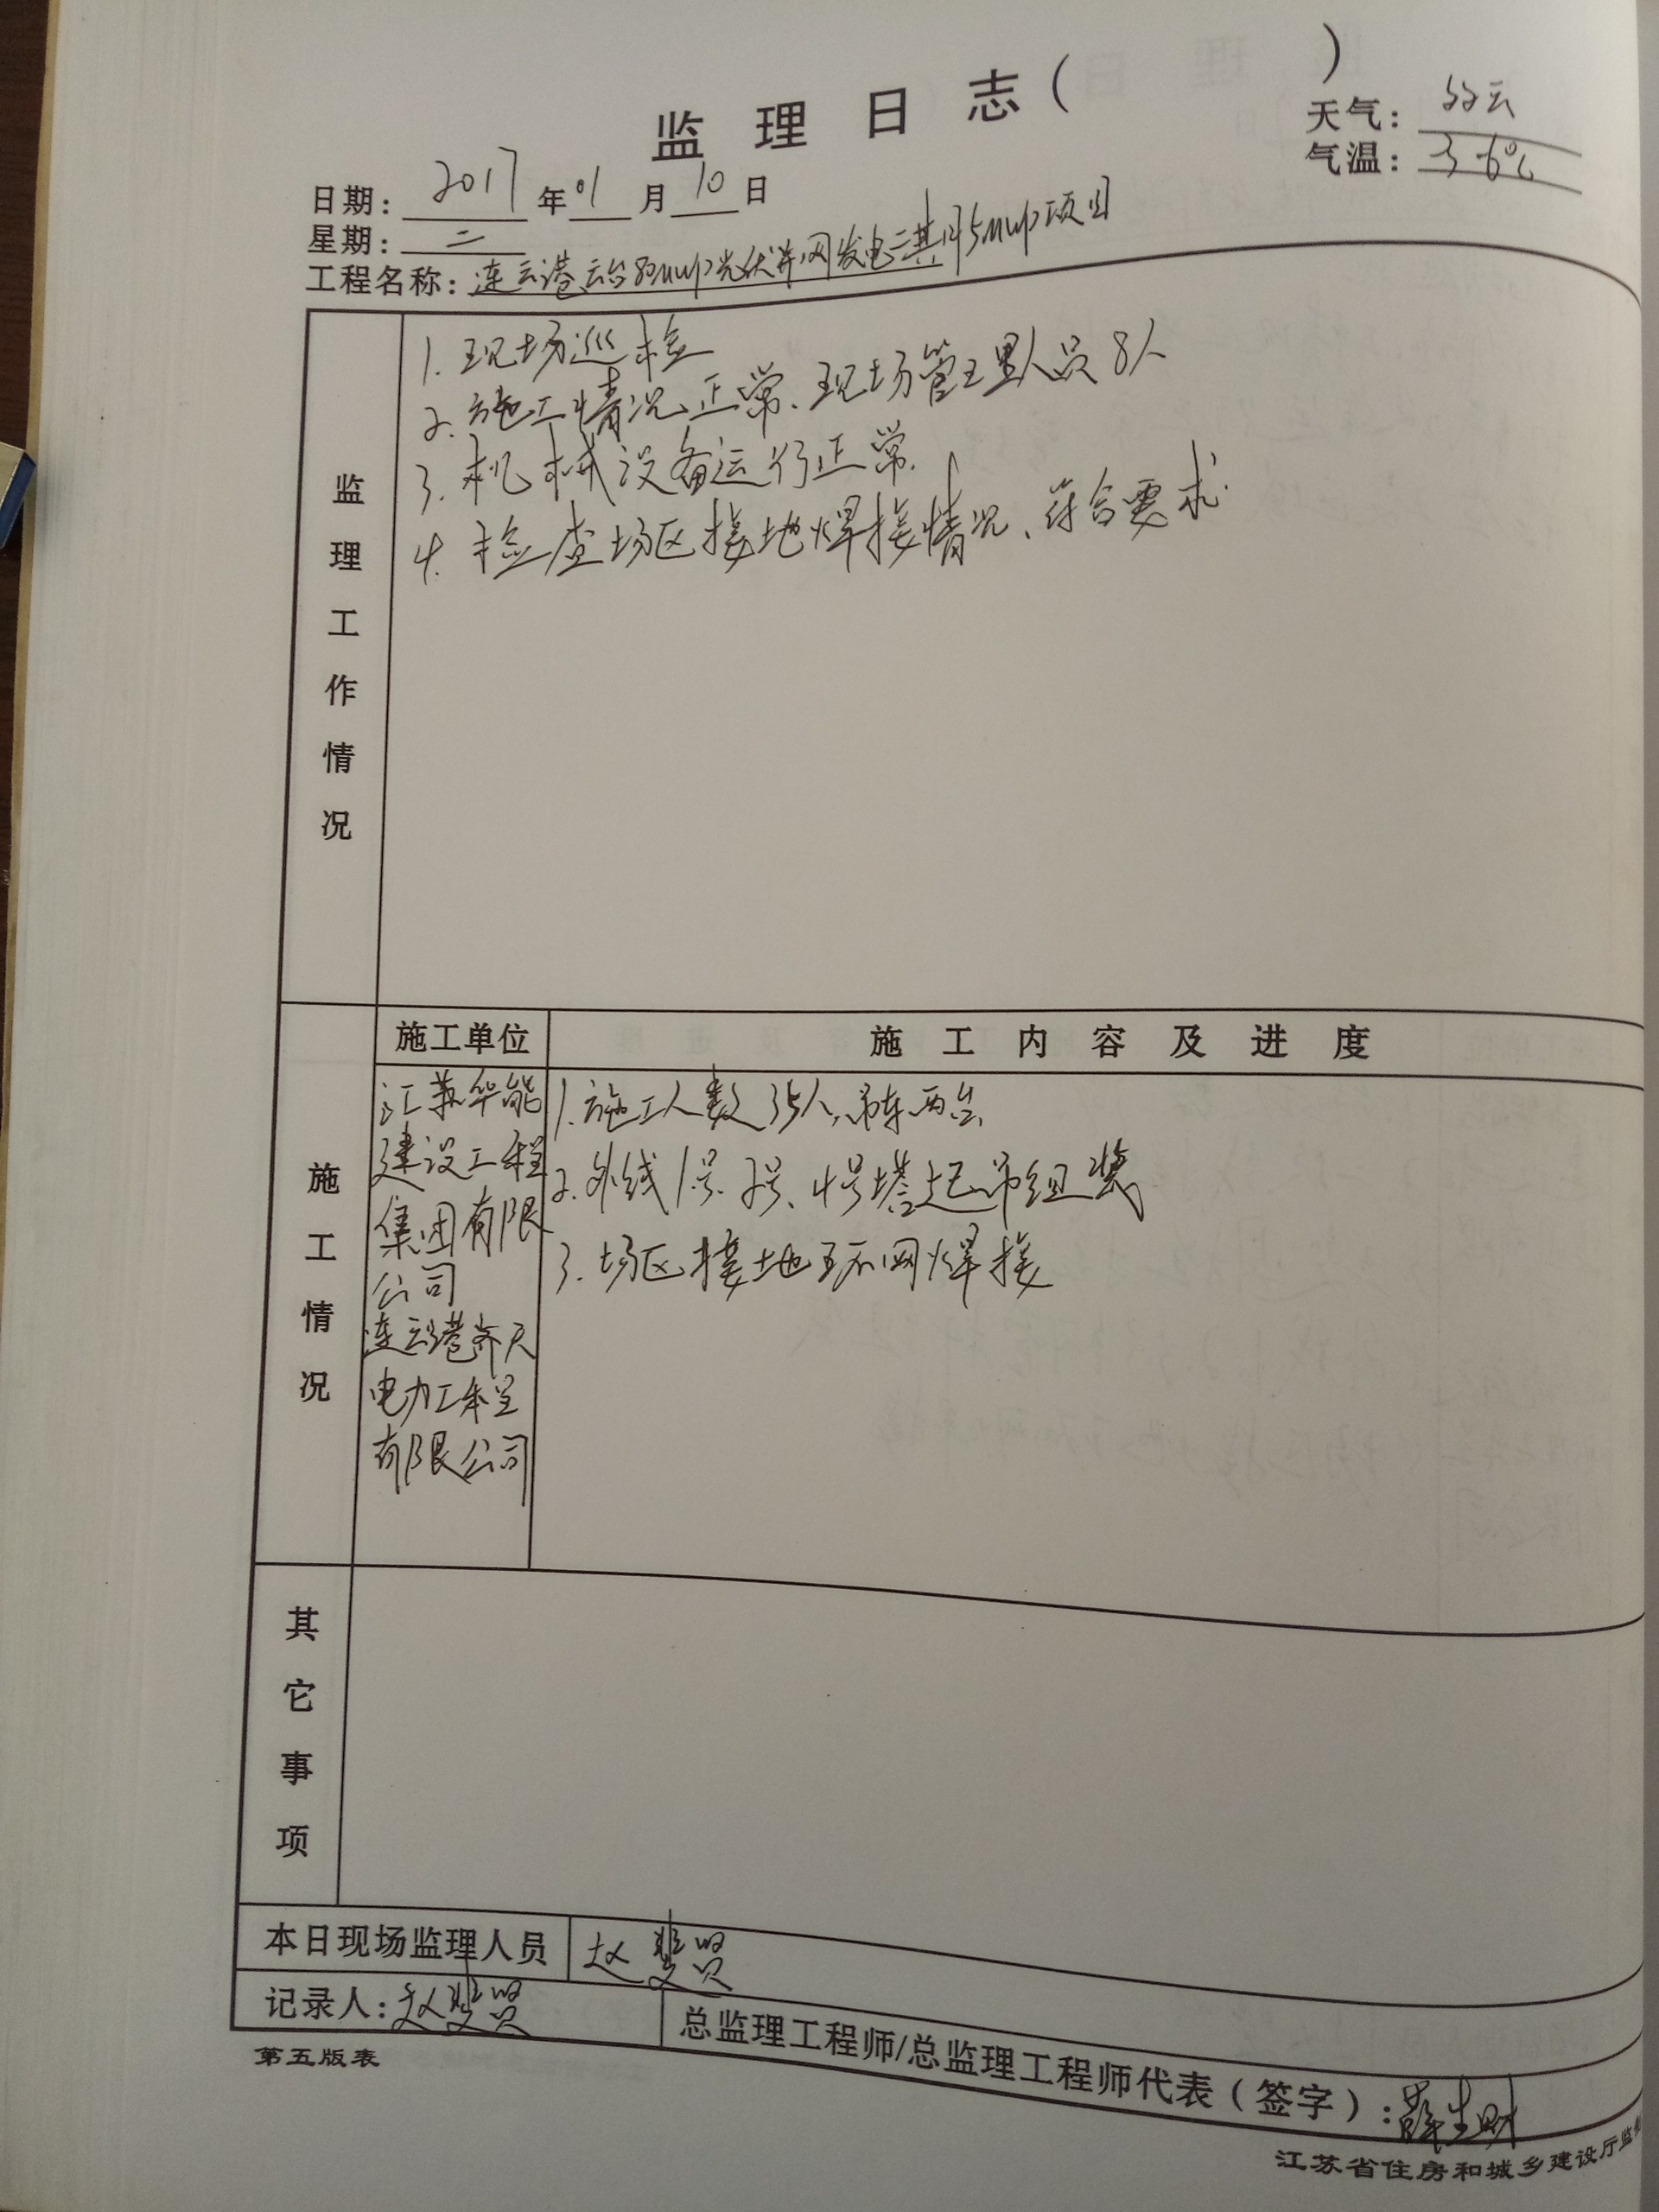 监理日志( )
天气: 多云
气温: 3-6℃
日期: 2017年01月10日
星期: 二
工程名称: 连云港云台80MWp光伏并网发电三期45MWp项目
监理工作情况
1. 现场巡检
2. 施工情况正常、现场管理人员8人
3. 机械设备运行正常.
4. 检查场区接地焊接情况、符合要求.
施工情况
施工单位
施工内容及进度
江苏华能
建设工程
集团有限
公司
连云港齐天
电力工程
有限公司
1. 施工人数35人,吊车两台
2. 外线1号、2号、4号塔起吊组装
3. 场区接地环网焊接
其它事项
本日现场监理人员 赵贤
记录人: 赵贤
总监理工程师/总监理工程师代表(签字): 薛生财
第五版表
江苏省住房和城乡建设厅监